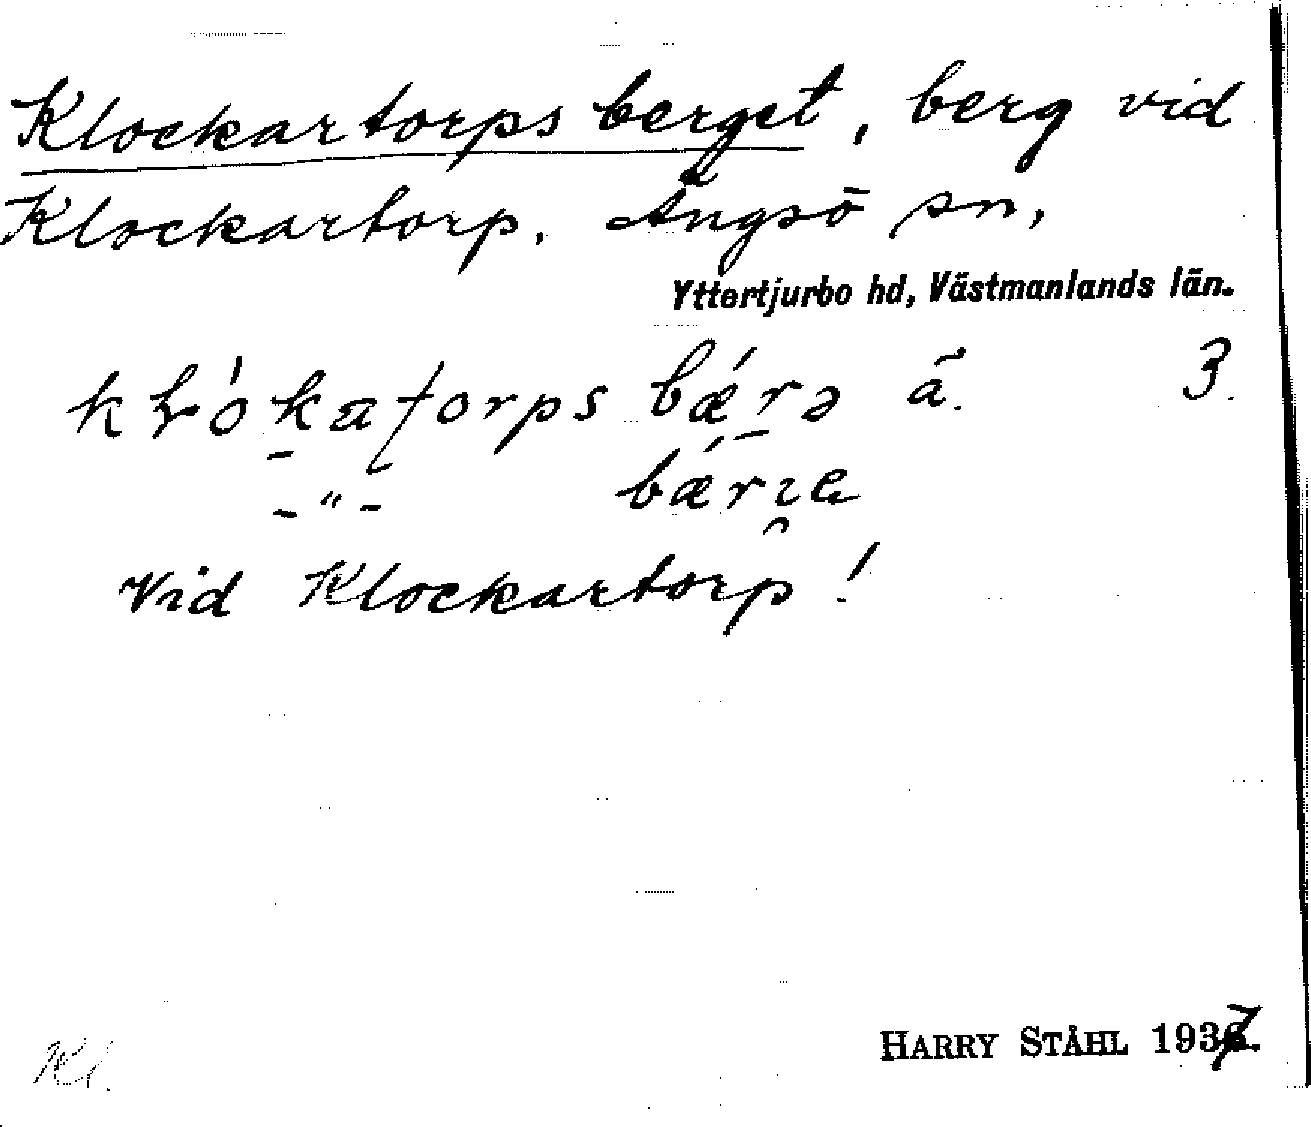 Klockartorpsberget, berg vid
Klockartorp, Ängsö sn,
Yttertjurbo hd, Västmanlands län.
bǽrə ä. 3.
-"-
Vid Klockartorp!
HARRY STÅHL 1937.
Kl.